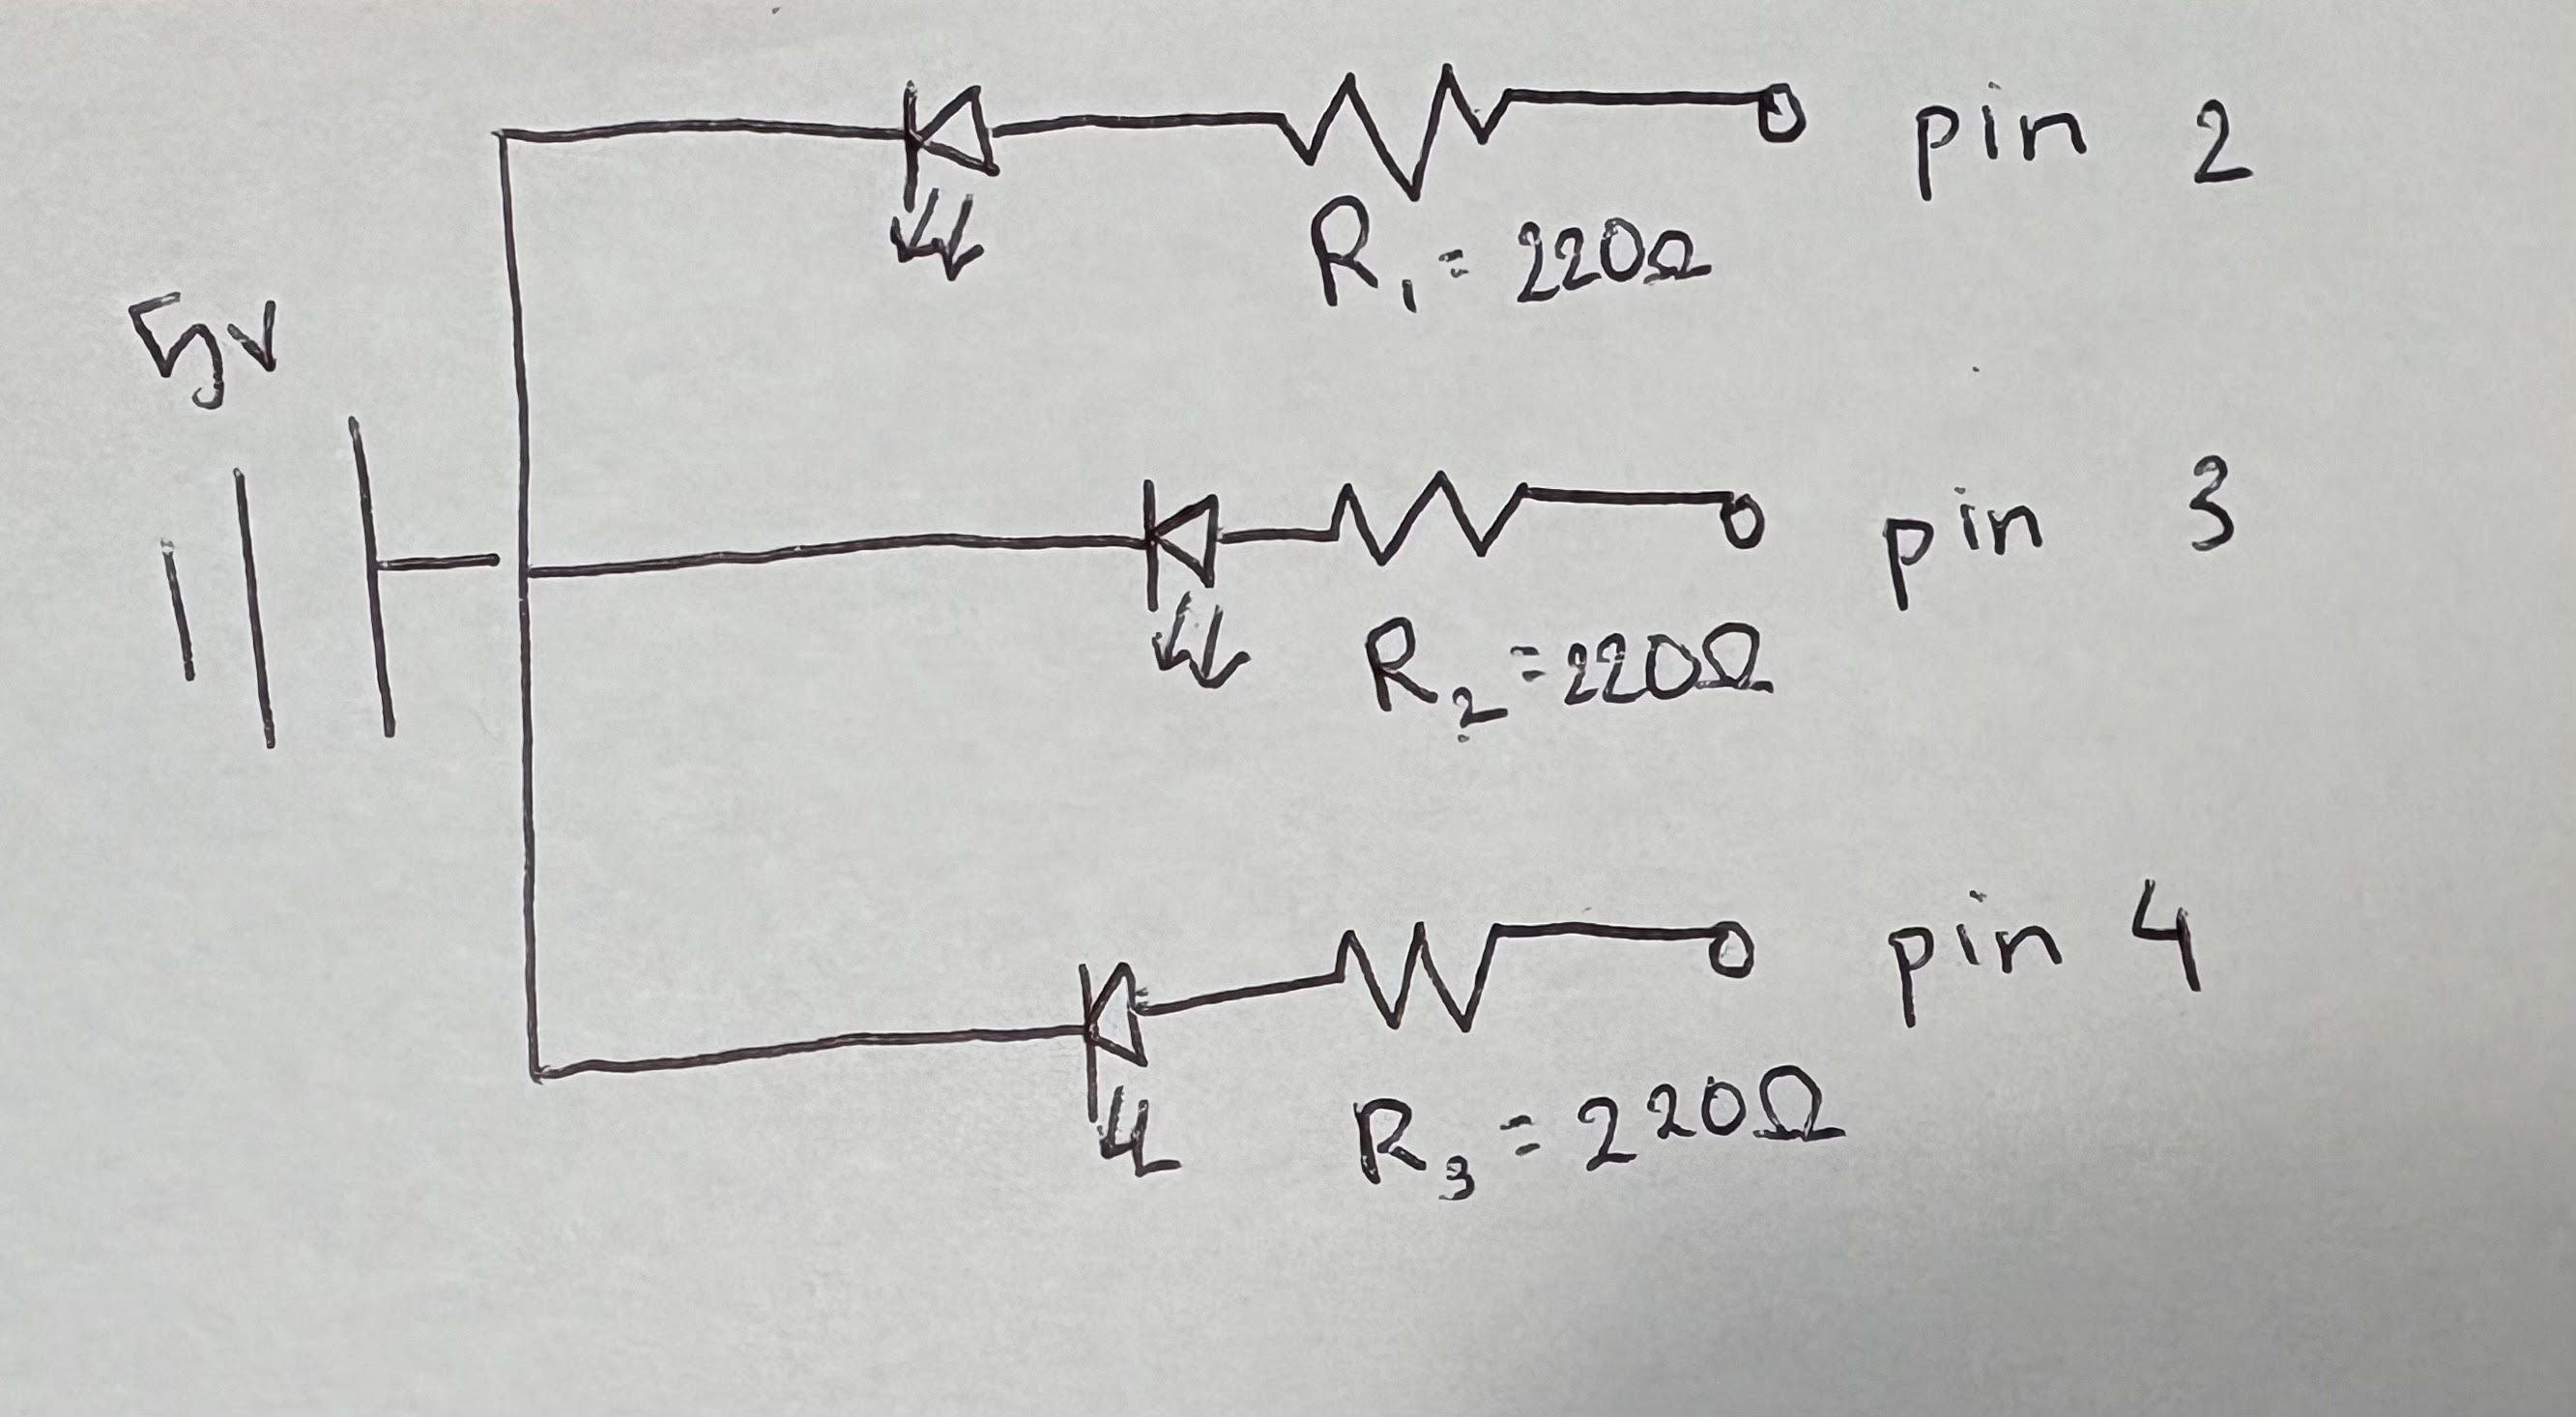 pin 2
R₁ = 220Ω
5v
pin 3
R₂ = 220Ω
pin 4
R₃ = 220Ω